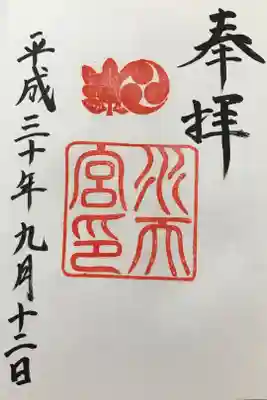 奉拝
水天宮印
平成三十年九月十二日